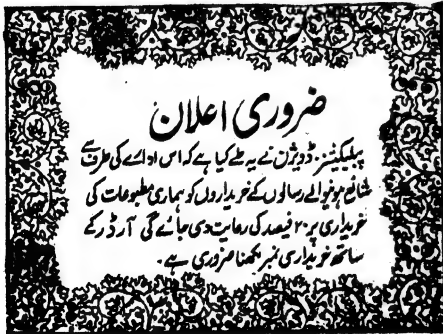 ضروری اعلان
پبلیکیشنز ڈویژن نے یہ طے کیا ہے کہ اس ادارے کی طرف سے
شائع ہونیوالے رسالوں کے خریداروں کو ہماری مطبوعات کی
خریداری پر ۲۰ فیصد کی رعایت دی جائے گی آرڈر کے
ساتھ خریداری نمبر لکھنا ضروری ہے۔